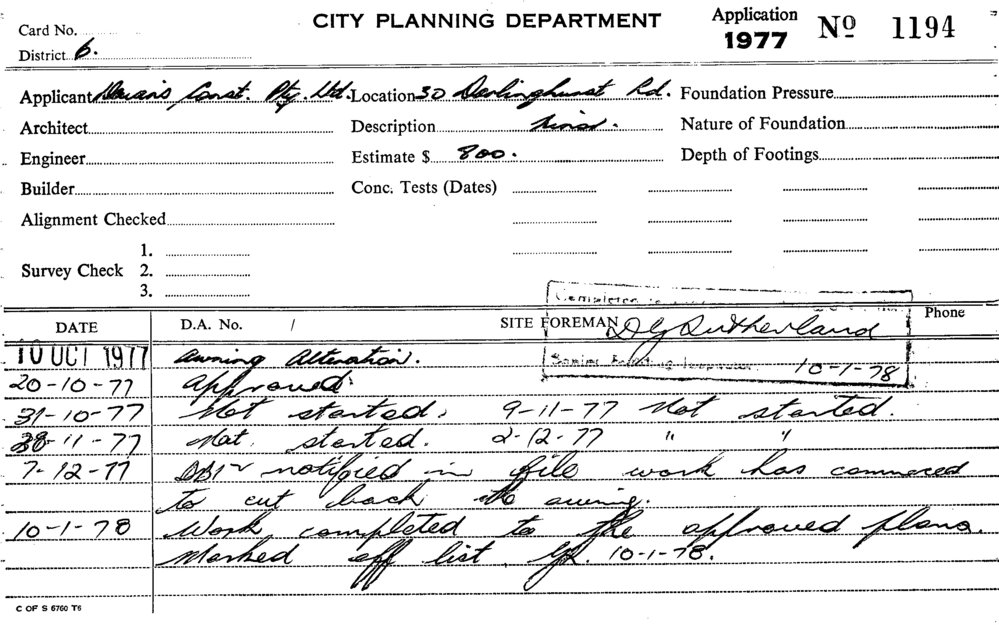 Card No.
CITY PLANNING DEPARTMENT
Application 1977 Nº 1194
District 6.
Applicant Const. Pty. Ltd. Location 30 Darlinghurst Rd. Foundation Pressure
Architect Description Minor. Nature of Foundation
Engineer Estimate $ 800. Depth of Footings
Builder Conc. Tests (Dates)
Alignment Checked
Survey Check 1.
2.
3.
DATE D.A. No. / SITE FOREMAN Phone
Completed
D G Sutherland
Senior Building Inspector
10-1-78
10 OCT 1977 Awning Alteration.
20-10-77 Approved.
31-10-77 Not started, 9-11-77 Not started.
28-11-77 Not started. 2-12-77 " "
7-12-77 notified in file work has commeced
to cut back the awning.
10-1-78 Work completed to the approved plans.
Marked off list. 10-1-78.
C OF S 6760 T6